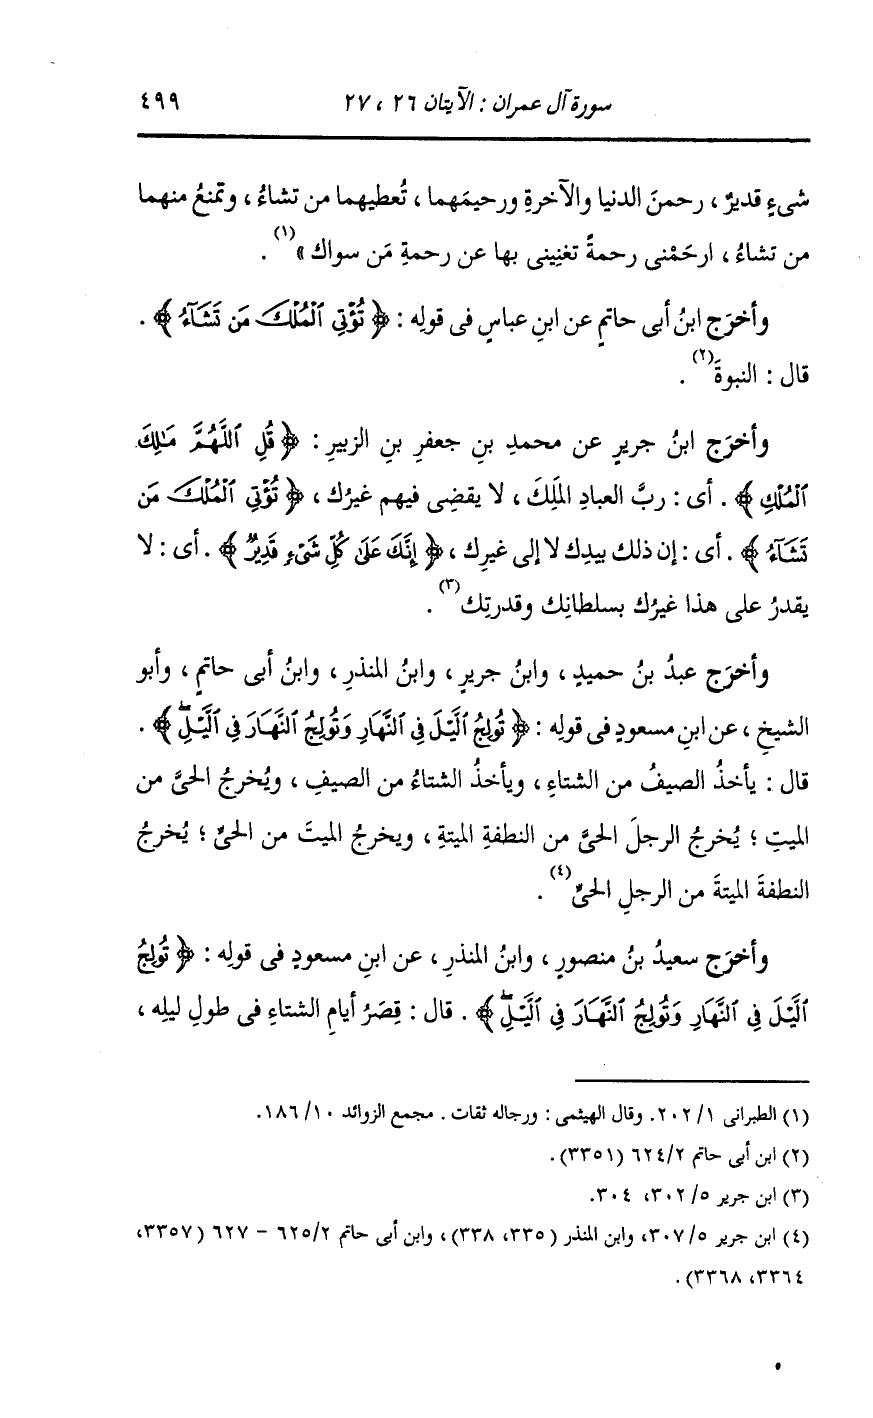 سورة آل عمران : الآيتان ٢٦ ، ٢٧ ٤٩٩
شىءٍ قديرٌ ، رحمنَ الدنيا والآخرةِ ورحيمَهما ، تُعطيهما من تشاءُ ، وتمنعُ منهما
من تشاءُ ، ارحَمْنى رحمةً تغنِينى بها عن رحمةِ مَن سواك »(١) .
وأخرَج ابنُ أبى حاتمٍ عن ابنِ عباسٍ فى قولِه : ﴿ تُؤْتِي ٱلْمُلْكَ مَن تَشَآءُ ﴾ .
قال : النبوةَ(٢) .
وأخرَج ابنُ جريرٍ عن محمدِ بنِ جعفرِ بنِ الزبيرِ : ﴿ قُلِ ٱللَّهُمَّ مَٰلِكَ
ٱلْمُلْكِ ﴾ . أى : ربَّ العبادِ الملَِكَ ، لا يقضِى فيهم غيرُك ، ﴿ تُؤْتِي ٱلْمُلْكَ مَن
تَشَآءُ ﴾ . أى : إن ذلك بيدِك لا إلى غيرِك ، ﴿ إِنَّكَ عَلَىٰ كُلِّ شَىْءٍ قَدِيرٌ ﴾ . أى : لا
يقدرُ على هذا غيرُك بسلطانِك وقدرتِك(٣) .
وأخرَج عبدُ بنُ حميدٍ ، وابنُ جريرٍ ، وابنُ المنذرِ ، وابنُ أبى حاتمٍ ، وأبو
الشيخِ ، عن ابنِ مسعودٍ فى قولِه : ﴿ تُولِجُ ٱلَّيْلَ فِى ٱلنَّهَارِ وَتُولِجُ ٱلنَّهَارَ فِى ٱلَّيْلِۖ ﴾ .
قال : يأخذُ الصيفُ من الشتاءِ ، ويأخذُ الشتاءُ من الصيفِ ، ويُخرجُ الحىَّ من
الميتِ ؛ يُخرجُ الرجلَ الحىَّ من النطفةِ الميتةِ ، ويخرجُ الميتَ من الحىِّ ؛ يُخرجُ
النطفةَ الميتةَ من الرجلِ الحىِّ(٤) .
وأخرَج سعيدُ بنُ منصورٍ ، وابنُ المنذرِ ، عن ابنِ مسعودٍ فى قولِه : ﴿ تُولِجُ
ٱلَّيْلَ فِى ٱلنَّهَارِ وَتُولِجُ ٱلنَّهَارَ فِى ٱلَّيْلِۖ ﴾ . قال : قِصَرُ أيامِ الشتاءِ فى طولِ ليلِه ،
(١) الطبرانى ٢٠٢/١. وقال الهيثمى : ورجاله ثقات . مجمع الزوائد ١٨٦/١٠.
(٢) ابن أبى حاتم ٦٢٤/٢ (٣٣٥١).
(٣) ابن جرير ٣٠٢/٥، ٣٠٤.
(٤) ابن جرير ٣٠٧/٥، وابن المنذر (٣٣٥، ٣٣٨)، وابن أبى حاتم ٦٢٥/٢ – ٦٢٧ (٣٣٥٧،
٣٣٦٤، ٣٣٦٨).